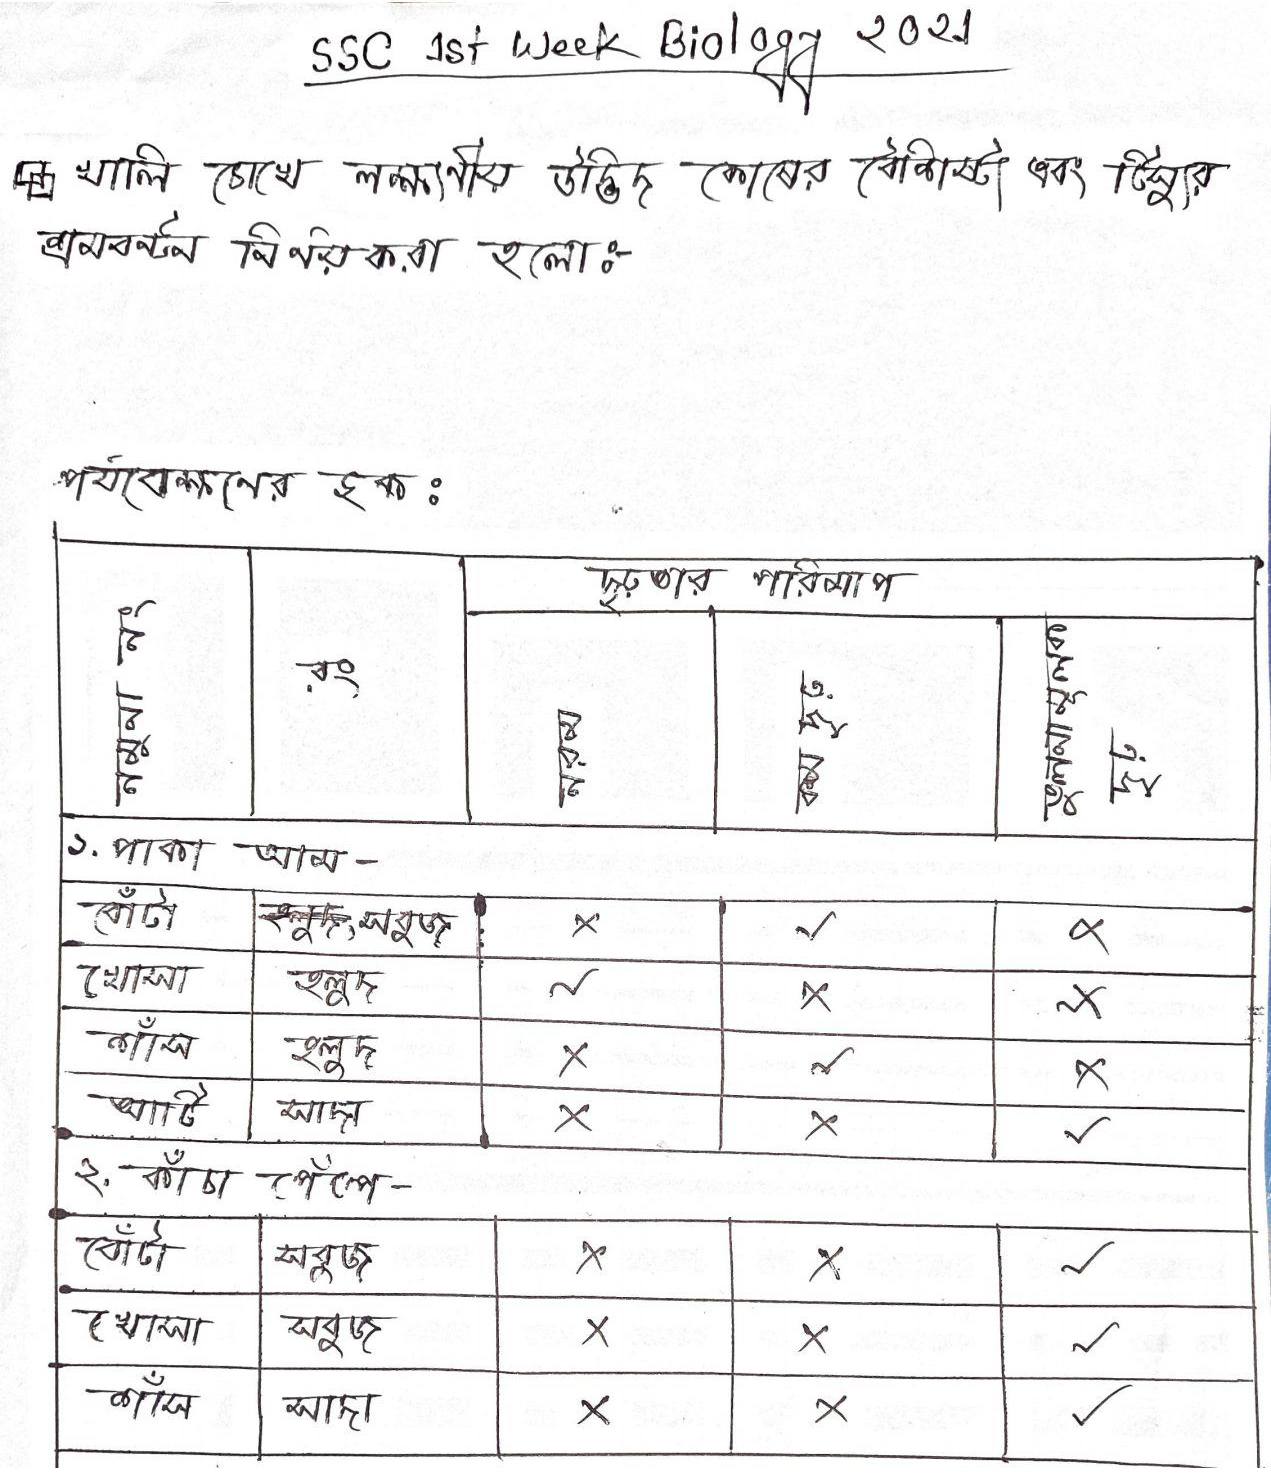 SSC 1st Week Biology 2021
খালি চোখে লক্ষ্যণীয় উদ্ভিদ কোষের বৈশিষ্ট্য এবং টিস্যুর
শ্রমবন্টন নির্ণয় করা হলোঃ-
পর্যবেক্ষণের ছক :
নমুনা নং রং দৃঢ়তার পরিমাপ
নরম কম দৃঢ় তুলনামূলক দৃঢ়
১. পাকা আম -
বোঁটা সবুজ × ✓ ×
খোসা হলুদ ✓ × ×
শাঁস হলুদ × ✓ ×
আটি সাদা × × ✓
২. কাঁচা পেঁপে -
বোঁটা সবুজ × × ✓
খোসা সবুজ × × ✓
শাঁস সাদা × × ✓